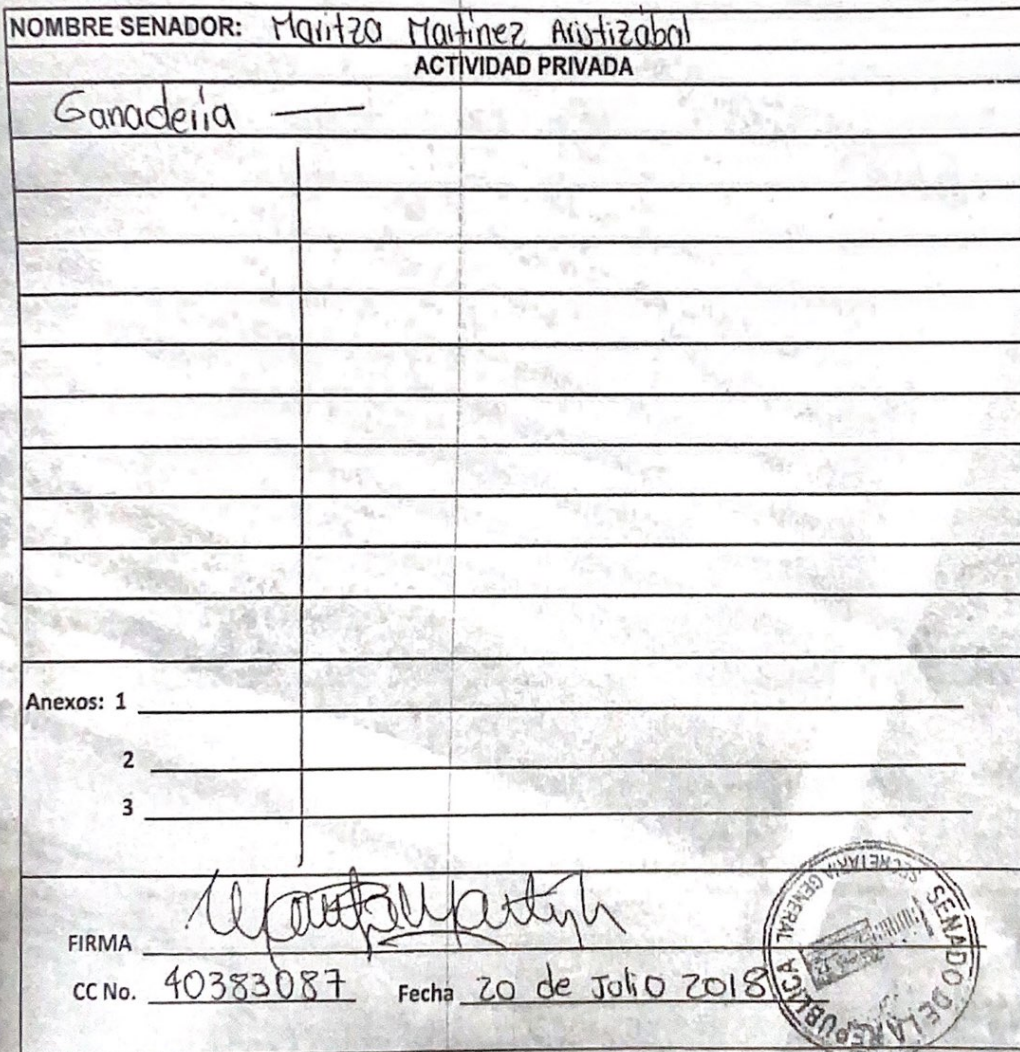 NOMBRE SENADOR: Maritza Martinez Aristizábal
ACTIVIDAD PRIVADA
Ganadería
Anexos: 1
2
3
FIRMA
CC No. 40383087 Fecha 20 de Julio 2018
SENADO DE LA REPUBLICA
SECRETARIA GENERAL